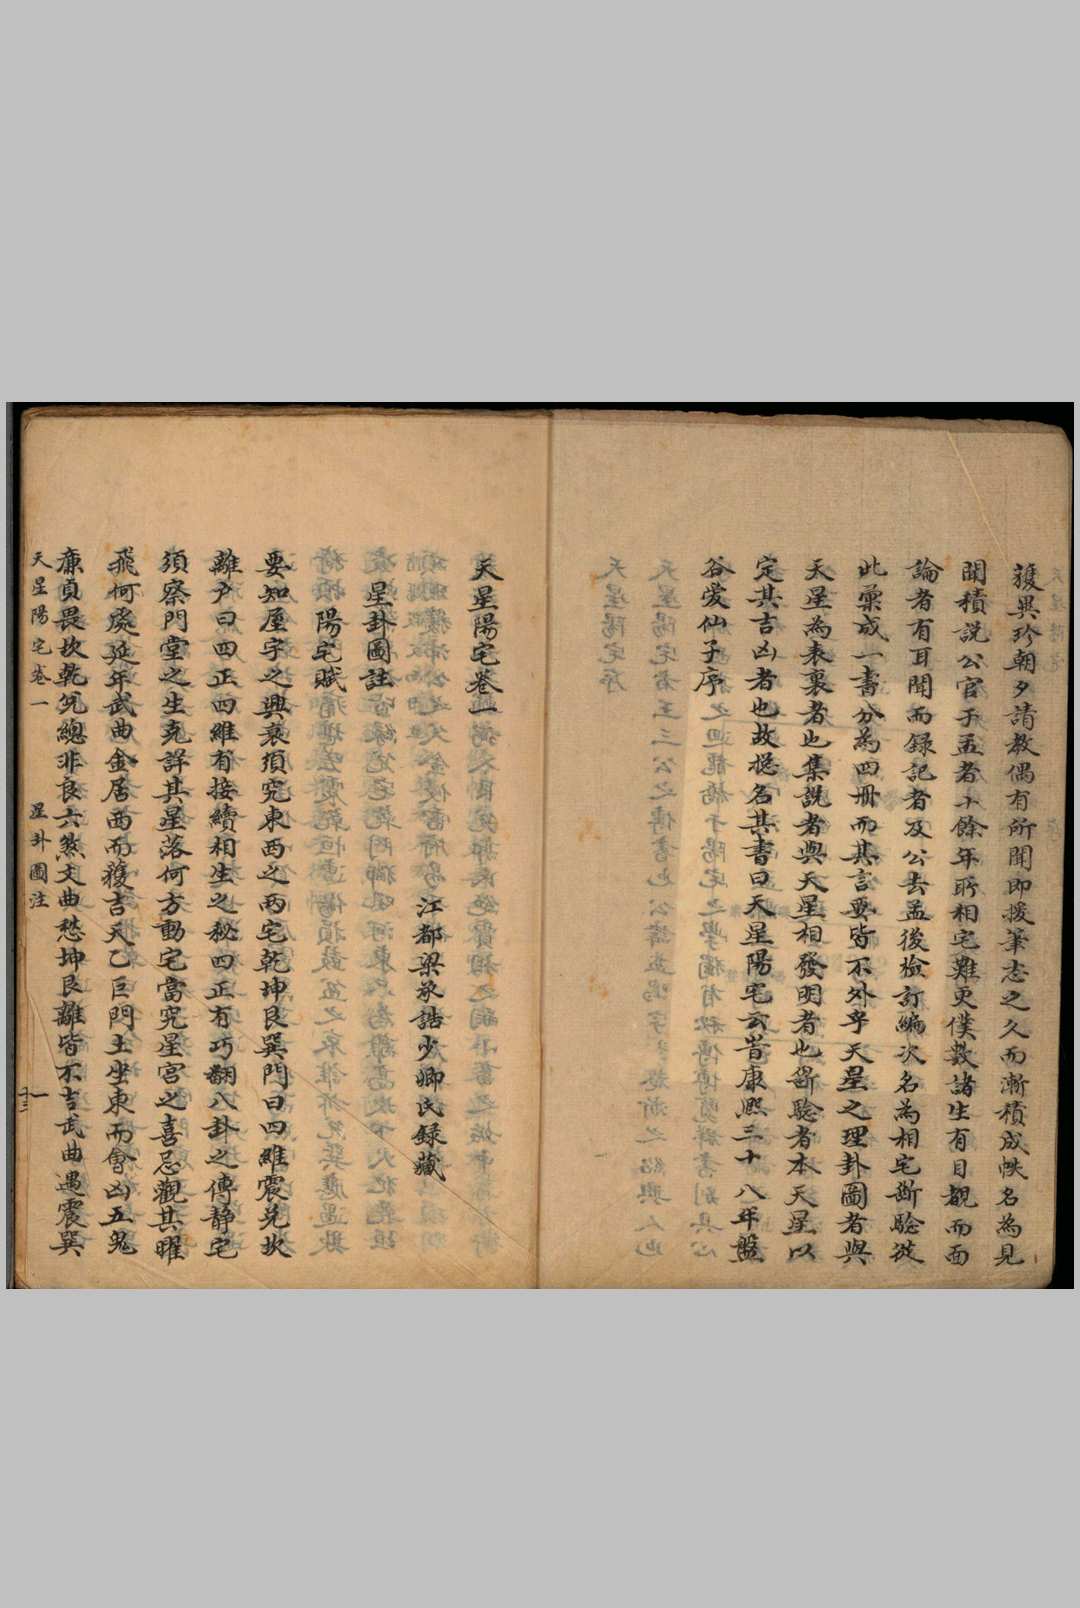 獲異珍朝夕請教偶有所聞即援筆志之久而漸積成帙名為見
聞積說公官于孟者十餘年所相宅難更僕數諸生有目覩而面
論者有耳聞而錄記者及公去孟後檢訂編次名為相宅斷驗茲
此彙成一書分為四冊而其言要皆不外乎天星之理卦圖者與
天星為表裏者也集說者與天星相發明者也斷驗者本天星以
定其吉凶者也故摠名其書曰天星陽宅云旹康熙三十八年盤
谷愛仙子序
天星陽宅卷一
江都梁承誥少卿氏錄藏
星卦圖註
陽宅賦
要知屋宇之興衰須究東西之兩宅乾坤艮巽門曰四維震兌坎
離户曰四正四維有接續相生之秘四正有巧翻八卦之傳靜宅
須察門堂之生克詳其星落何方動宅當究星宮之喜忌觀其曜
飛何處延年武曲金居西而獲吉天乙巨門土坐東而會凶五鬼
廉貞畏坎乾兌總非良六煞文曲愁坤艮離皆不吉武曲遇震巽
天星陽宅卷一
星卦圖注